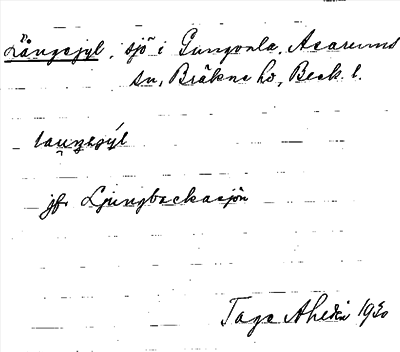 Långsjyl, sjö i Gungvala, Asarums
sn, Bräkne hd, Blek. l.
jfr Ljungbackasjön
Tage Ahlén 1930